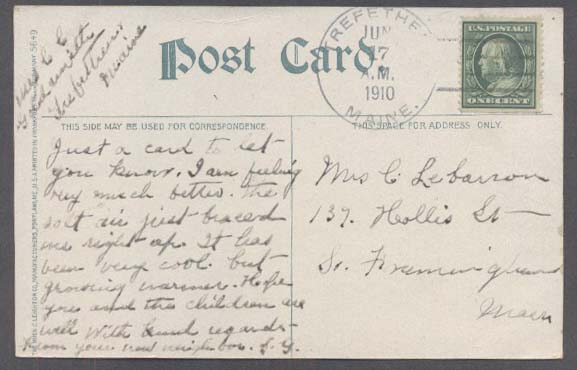 Mrs E E
Trefethen
Maine
Post Card.
TREFETHEN
JUN
17
A.M.
1910
MAINE.
U.S. POSTAGE
ONE CENT
THIS SIDE MAY BE USED FOR CORRESPONDENCE.
THIS SPACE FOR ADDRESS ONLY.
Just a card to let
you know. I am feeling
very much better. The
salt air just braced
me right up. It has
been very cool but
growing warmer. Hope
you and the children are
well With kind regards
From your new neighbor. S. G.
Mrs C. Lebarron
137. Hollis St
So. Framingham
Mass